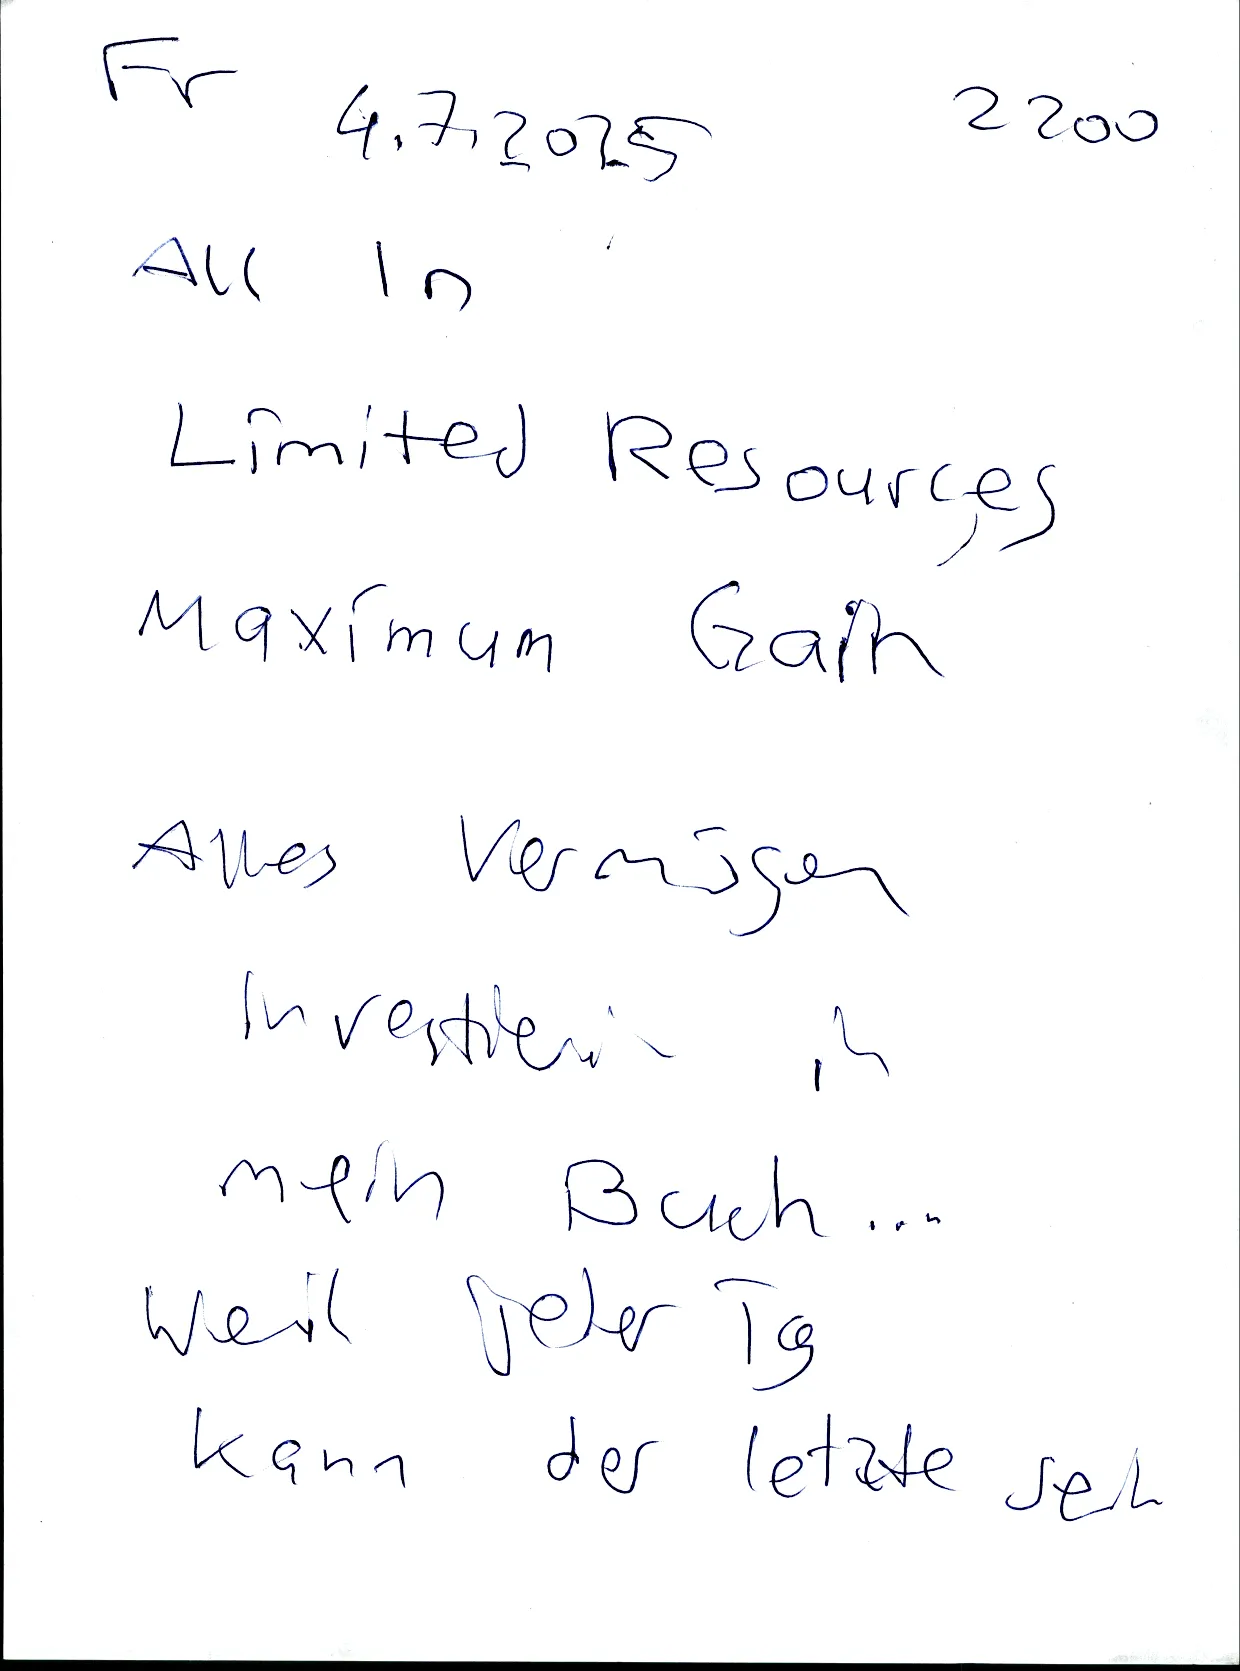 Fr 4.7.2025 2200
All In
Limited Resources
Maximum Gain
Alles Vermögen
Investieren in
mein Buch...
Weil jeder Tag
kann der letzte sein